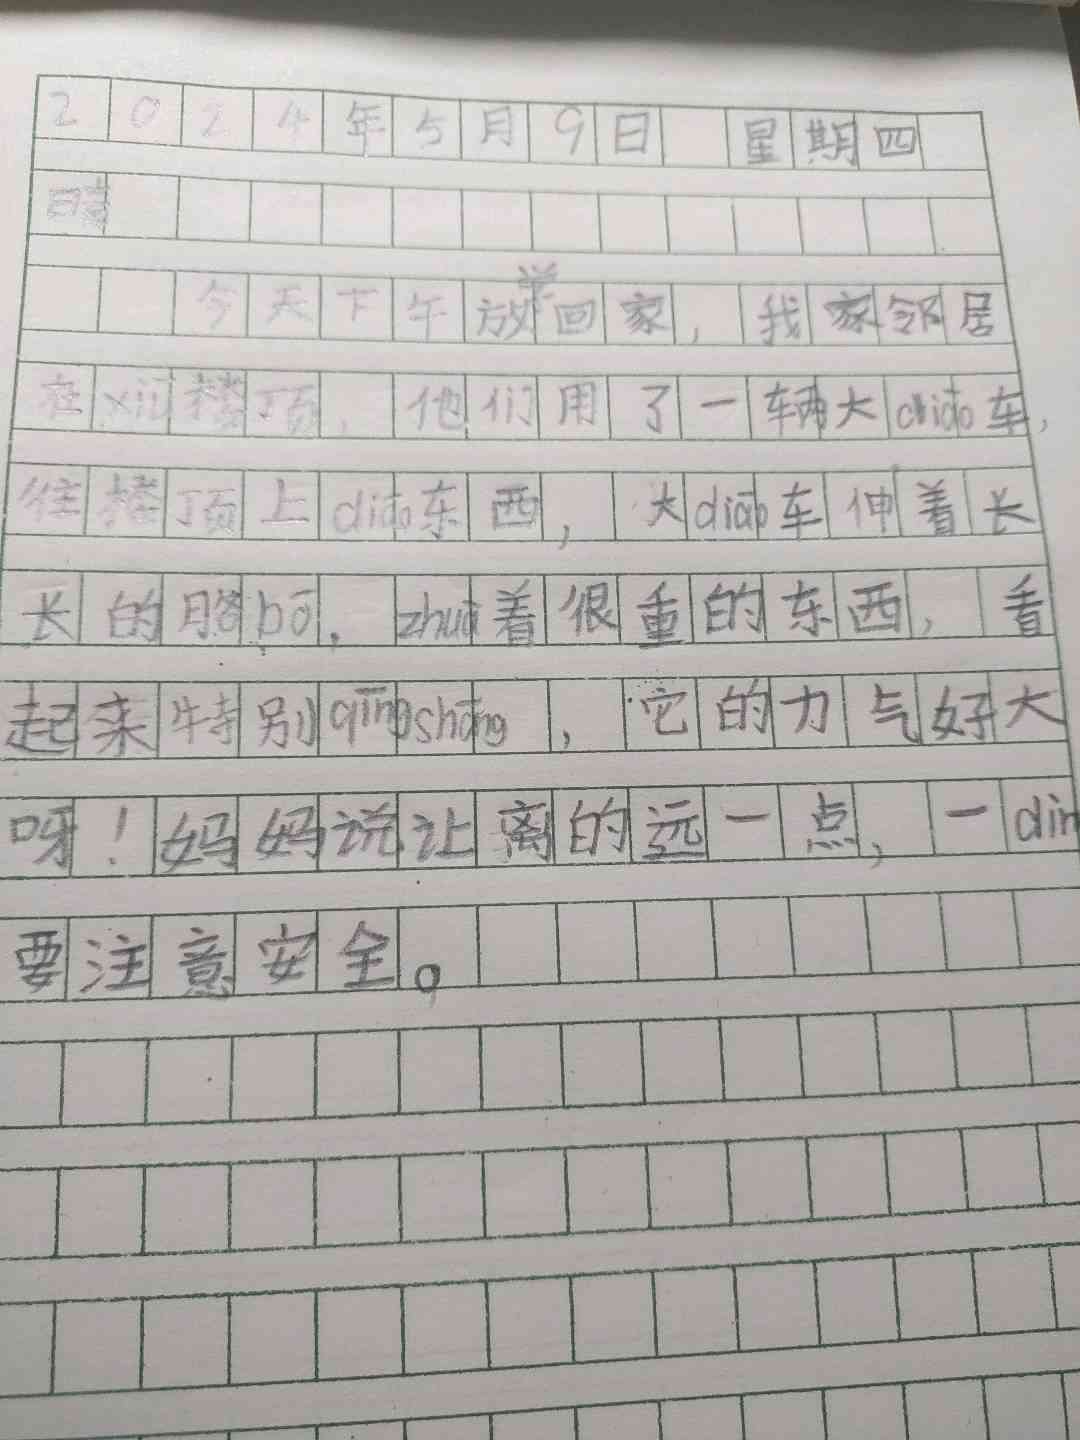 2024年5月9日 星期四
晴
今天下午放学回家，我家邻居
在xiū楼顶，他们用了一辆大diào车，
往楼顶上diào东西，大diào车伸着长
长的胳bō，zhuā着很重的东西，看
起来特别qīngsōng，它的力气好大
呀！妈妈说让离的远一点，一din
要注意安全。